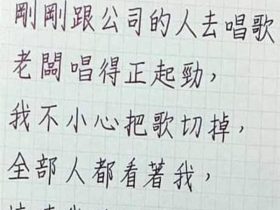 剛剛跟公司的人去唱歌
老闆唱得正起勁，
我不小心把歌切掉，
全部人都看著我，